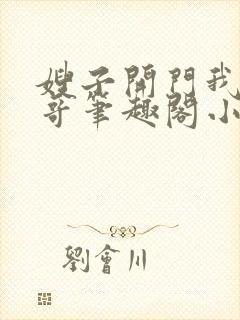 嫂子開門我
哥筆趣閣小
劉會川